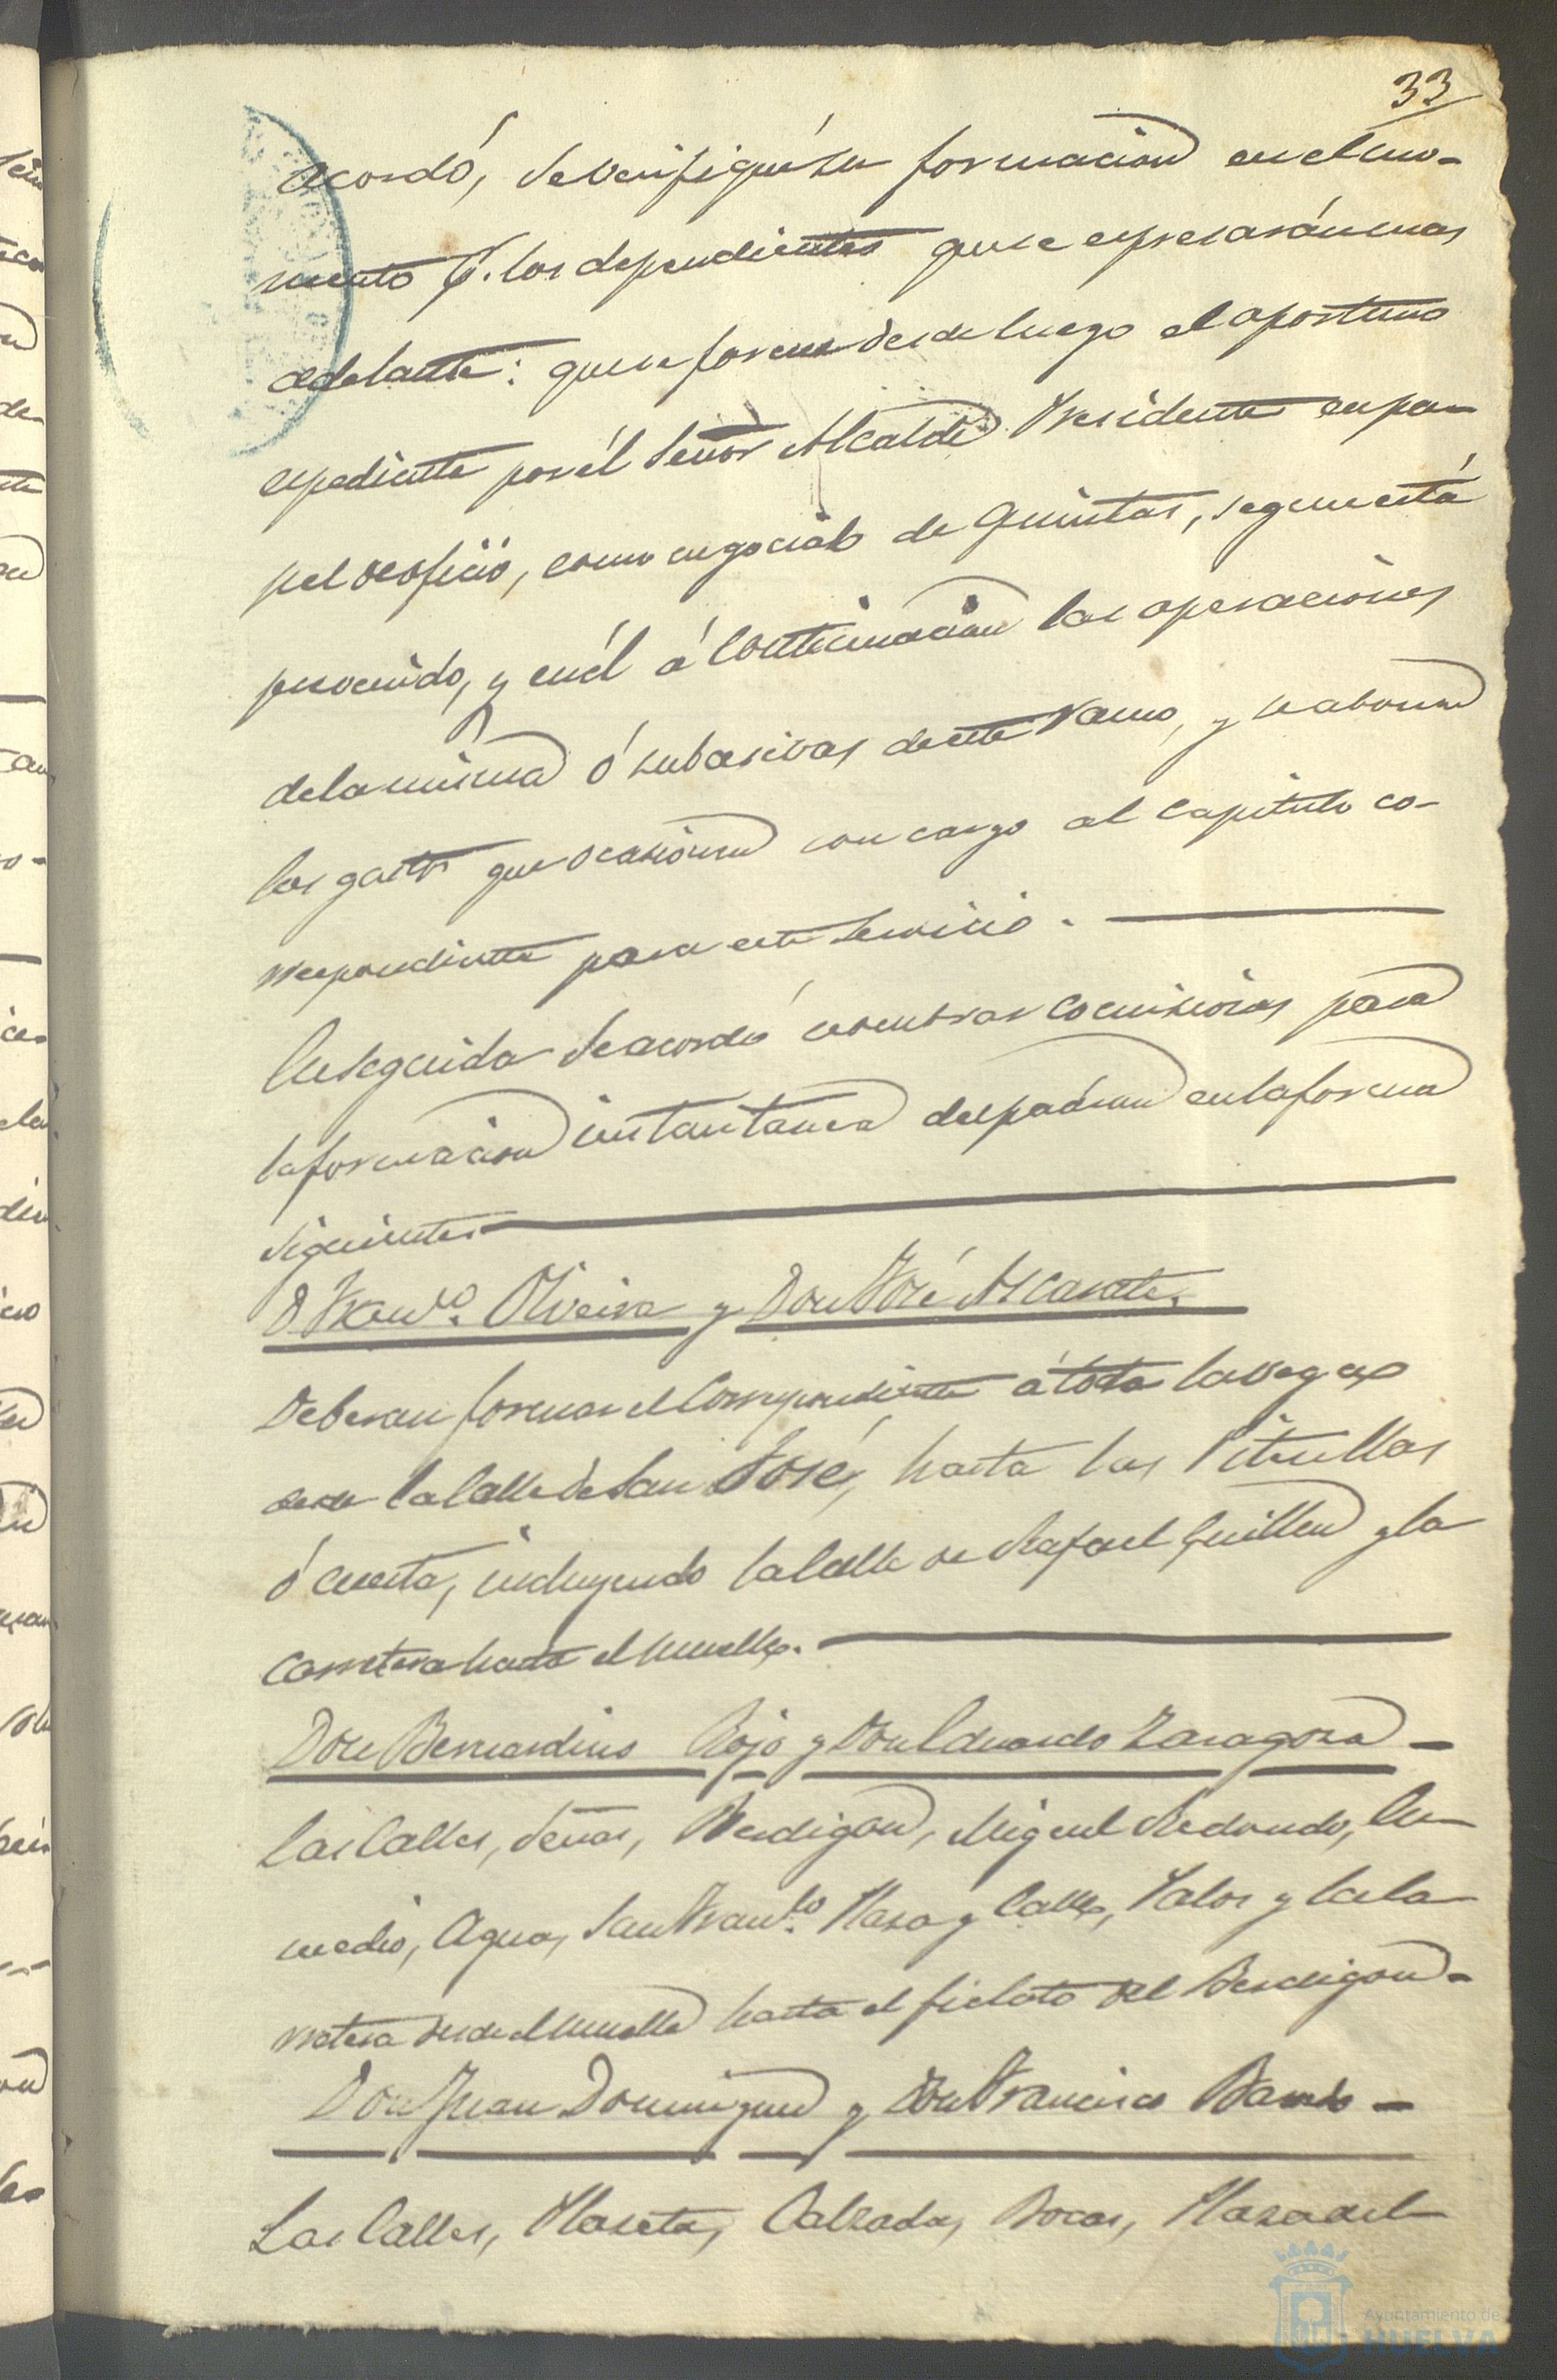 33
acordó, se verifique su formacion en el mo-
mento p.r los dependientes que se espresarán mas
adelante: que se forme desde luego el oportuno
espediente por él Señor Alcalde Presidente en pa-
pel de oficio, como negociado de Quintas, segun está
prevenido, y en él á continuacion las operaciones
de la misma ó subcesivas de este ramo, y se abonen
los gastos que ocasionen con cargo al capitulo co-
rrespondiente para este servicio.
Enseguida se acordó nombrar comisiones para
la formacion instantanea del padron en la forma
siguiente.
D Fran.co Oliveira y Don José Alcarate.
Deberan formar el correspondiente á toda la vega
desde la Calle de San José, hasta las
ó cuesta, incluyendo la Calle de Rafael Guillen y la
carretera hasta el muelle.
Don Bernardino Rojo y Don Eduardo Zaragoza
Las Calles, Señas, Berdigon, Miguel Redondo, En-
medio, Agua, San Fran.co Plaza y Calle, Palos y la ca-
rretera desde el muelle hasta el fielato del Berdigon.
Don Juan Dominguez y Don Francisco
Las Calles, Placeta, Calzada, Bocas, Plaza del
Ayuntamiento de
HUELVA